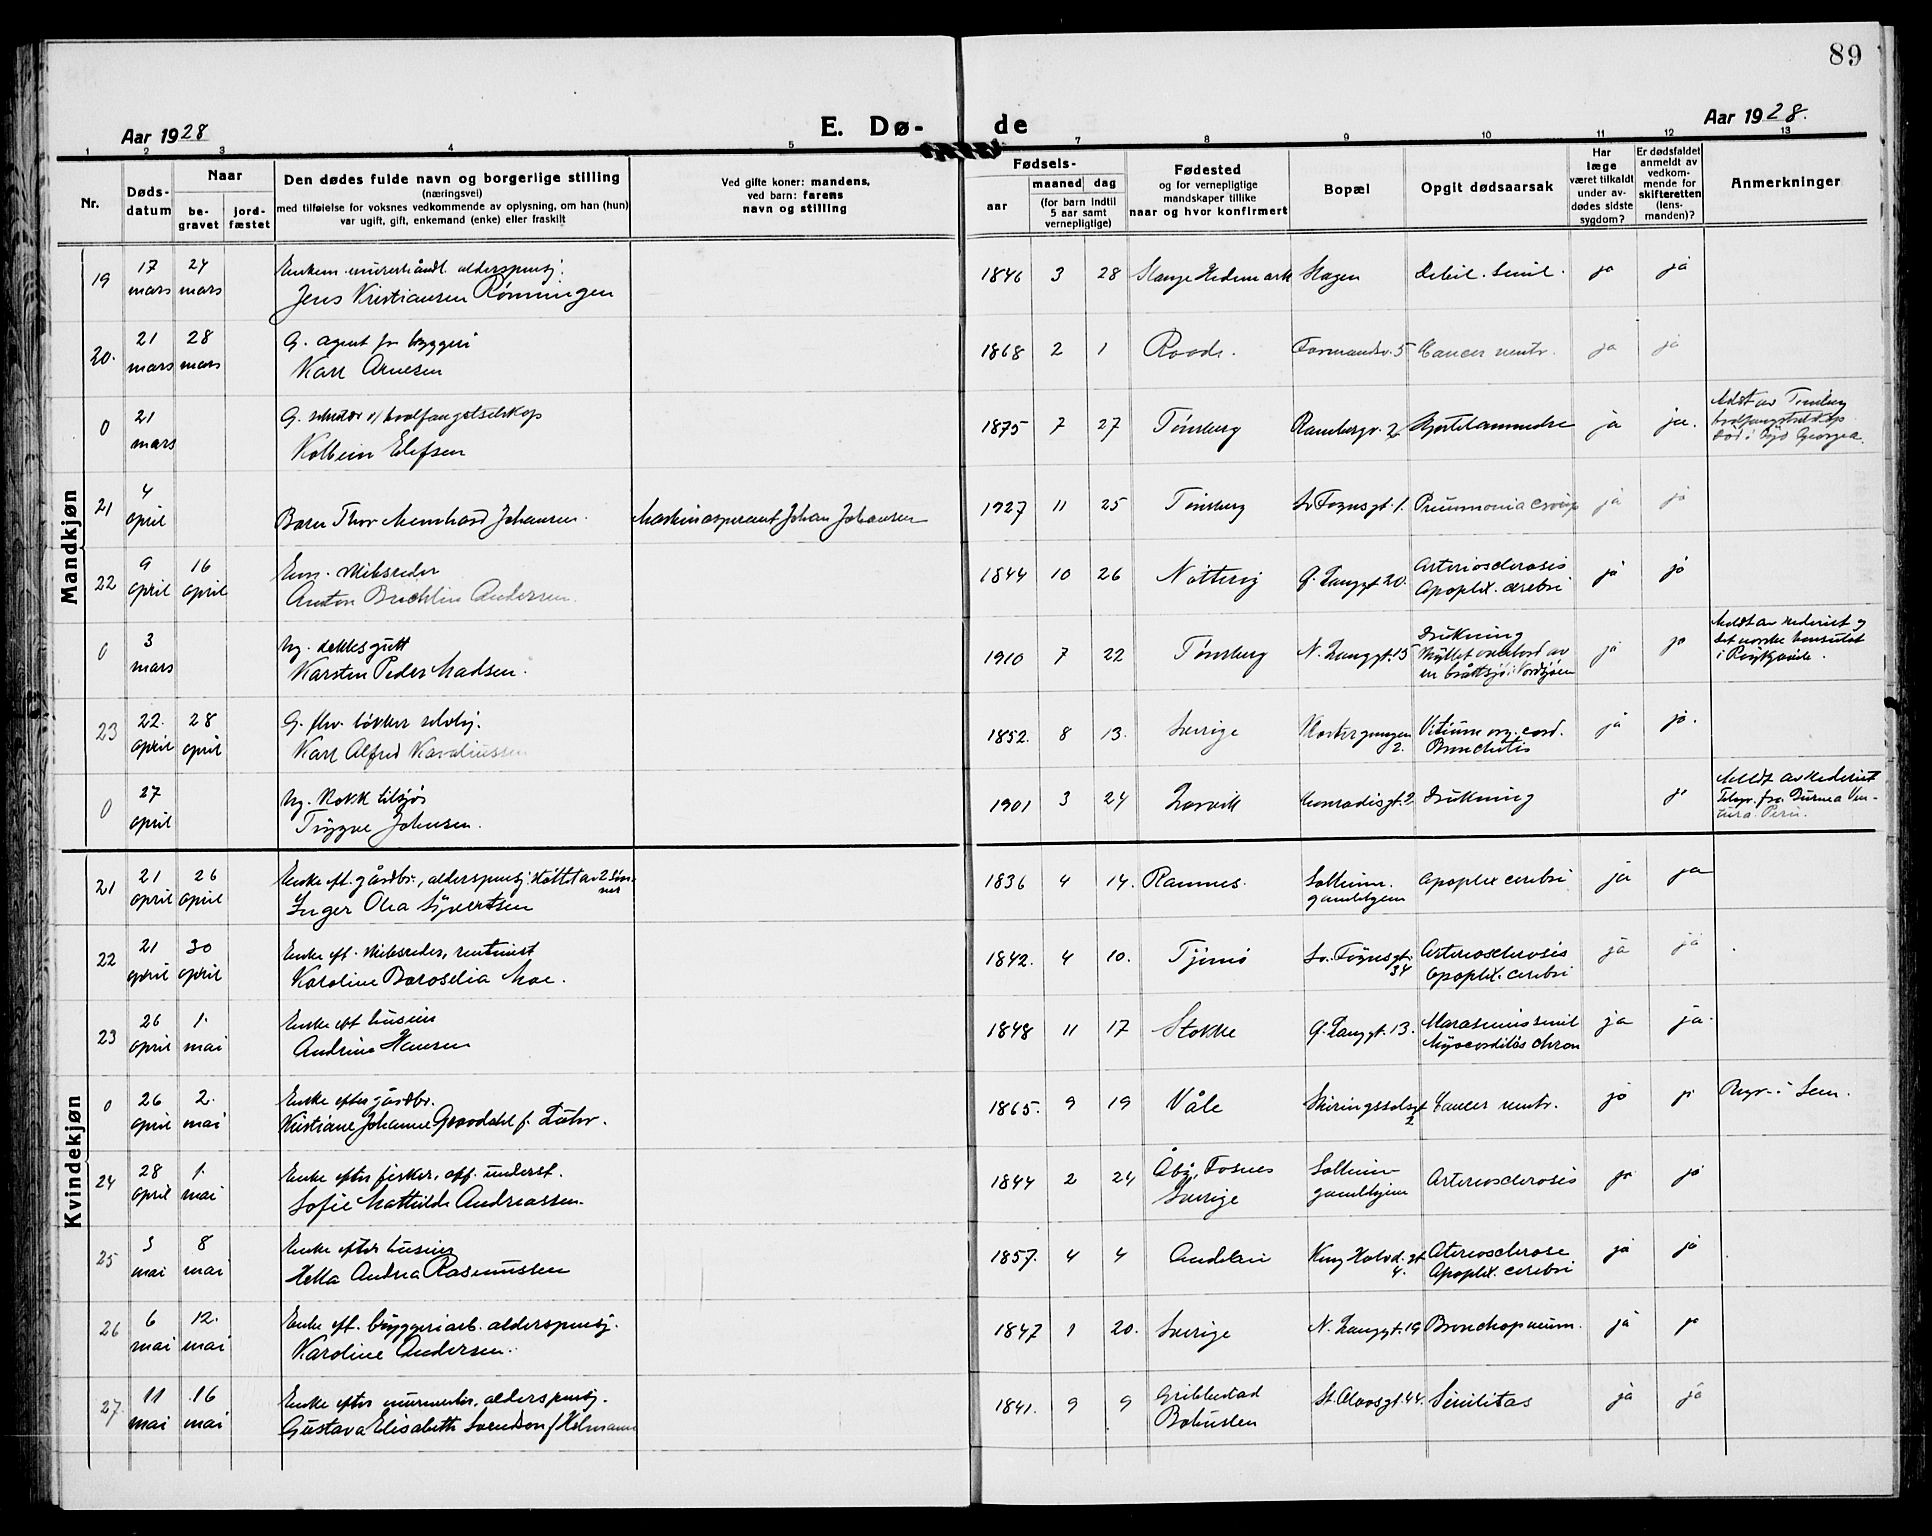 89
Aar 1928
E. Dø- de
Aar 1928.
1 2 3 4 5 7 8 9 10 11 12 13
Nr.
Døds-
datum
Naar
be-
gravet
jord-
fæstet
Den dødes fulde navn og borgerlige stilling
(næringsvei)
med tilføielse for voksnes vedkommende av oplysning, om han (hun)
var ugift, gift, enkemand (enke) eller fraskilt
Ved gifte koner: mandens,
ved barn: farens
navn og stilling
Fødsels-
aar
maaned dag
(for barn indtil
5 aar samt
vernepligtige)
Fødested
og for vernepligtige
mandskaper tillike
naar og hvor konfirmert
Bopæl
Opgit dødsaarsak
Har
læge
været tilkaldt
under av-
dødes sidste
sygdom?
Er dødsfaldet
anmeldt av
vedkom-
mende for
skifteretten
(lens-
manden)?
Anmerkninger
Mandkjøn
19 17 mars 24 mars
Enkem. alderspensj.
Jens Kristiansen Rønningen
1846 3 28 Stange Hedemark Hagen Debil. Senil. ja ja
20. 21 mars 28 mars
G. agent for bryggeri
Karl Arnesen
1868 2 1 Raade. Farmandsv. 5 Cancer ventr. ja ja
0 21 mars
G. hvalfangstselskap
Kolbein Elefsen
1875 7 27 Tønsberg Rambergv. 2 Hjertelammelse ja ja.
Meldt av Tønsberg
hvalfangstselskap
død i Syd Georgia.
21 4 april
Barn Thor Menhard Johansen. Maskinoperent Johan Johansen
1927 11 25 Tønsberg Sv. Foynsgt. 1. Pneumonia croup ja ja
22 9 april 16 april
Enm. skibsreder
Anton Andersen.
1844 10 26 Nøtterøy G. Langgt 20. Arteriosclerosis
Apoplex. cerebri ja ja
0 3 mars
Ug. dekksgutt
Karsten Peder Madsen.
1910 7 22 Tønsberg N. Langgt. 15 Drukning
skyllet overbord av
en bråttsjø i Nordsjøen ja ja
Meldt av rederiet og
det norske konsulat
i
23 22. april 28 april
G. fhv. bøkker selvst.
Karl Alfred
1852. 8 13. Sverige Klostergangen
2. Vitium org. cord.
Bronchitis ja ja.
0 27 april
Ug. kokk tilsjøs
Trygve Johnsen.
1901 3 24 Larvik Conradisgt. 2. Drukning ja
Meldt av rederiet
Telegr. fra Ven-
tura. Peru.
Kvindekjøn
21 21 april 26 april
Enke eft. gårdbr., alderspensj. støttet av 2 søn-
ner
Inger Olea Syvertsen
1836 4 14. Ramnes. Solheim.
gamlehjem Apoplex cerebri ja ja
22 21 april 30 april
Enke eft. skibsreder, rentenist
Karoline Moe.
1842. 4 10. Tjømø Sv. Foynsgt.
34 Arteriosclerosis
Apoplex. cerebri ja ja
23 26 april 1. mai
Enke eft huseier
Andrine Hansen
1848 11 17 Stokke G. Langgt. 13. Marasmus senil
Myocarditis chron ja ja.
0 26 april 2. mai
Enke efter gårdbr.
Kristiane Johanne Gravdahl f.
1865. 9 19 Våle Skiringssalsgt
2 Cancer ventr. ja ja Begr. i Sem.
24 28 april 1. mai
Enke efter fisker, off. underst.
Sofie Mathilde Andreassen.
1844 2 24 Åby, Fosnes
Sverige Solheim
gamlehjem Arteriosclerosis ja ja
25 3 mai 8 mai
Enke efter huseier
Hella Andrea Rasmussen
1857. 4 4 Andebu Kong Halvd. gt
4. Aterosclerose
Apoplex. cerebri ja ja
26 6 mai 12. mai
Enke eft. bryggeriarb. alderspensj.
Karoline Andersen.
1847 1 20. Sverige N. Langgt. 19 Bronchopneum. ja ja
27. 11 mai 16 mai
Enke efter alderspensj.
Gustava Elisabeth Svendson f
1841. 9 9 Gribbestad
Bohuslen St. Olavsgt. 44. Senilitas ja ja